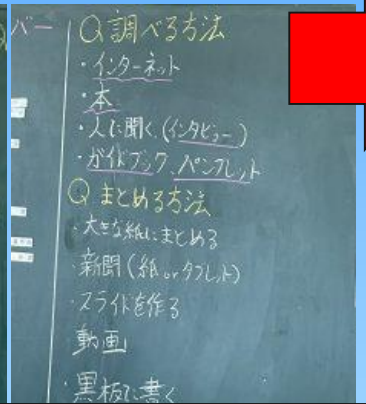 バー
Q 調べる方法
・インターネット
・本
・人に聞く(インタビュー)
・ガイドブック、パンフレット
Q まとめる方法
・大きな紙にまとめる
・新聞(紙orタブレット)
・スライドを作る
動画
・黒板に書く